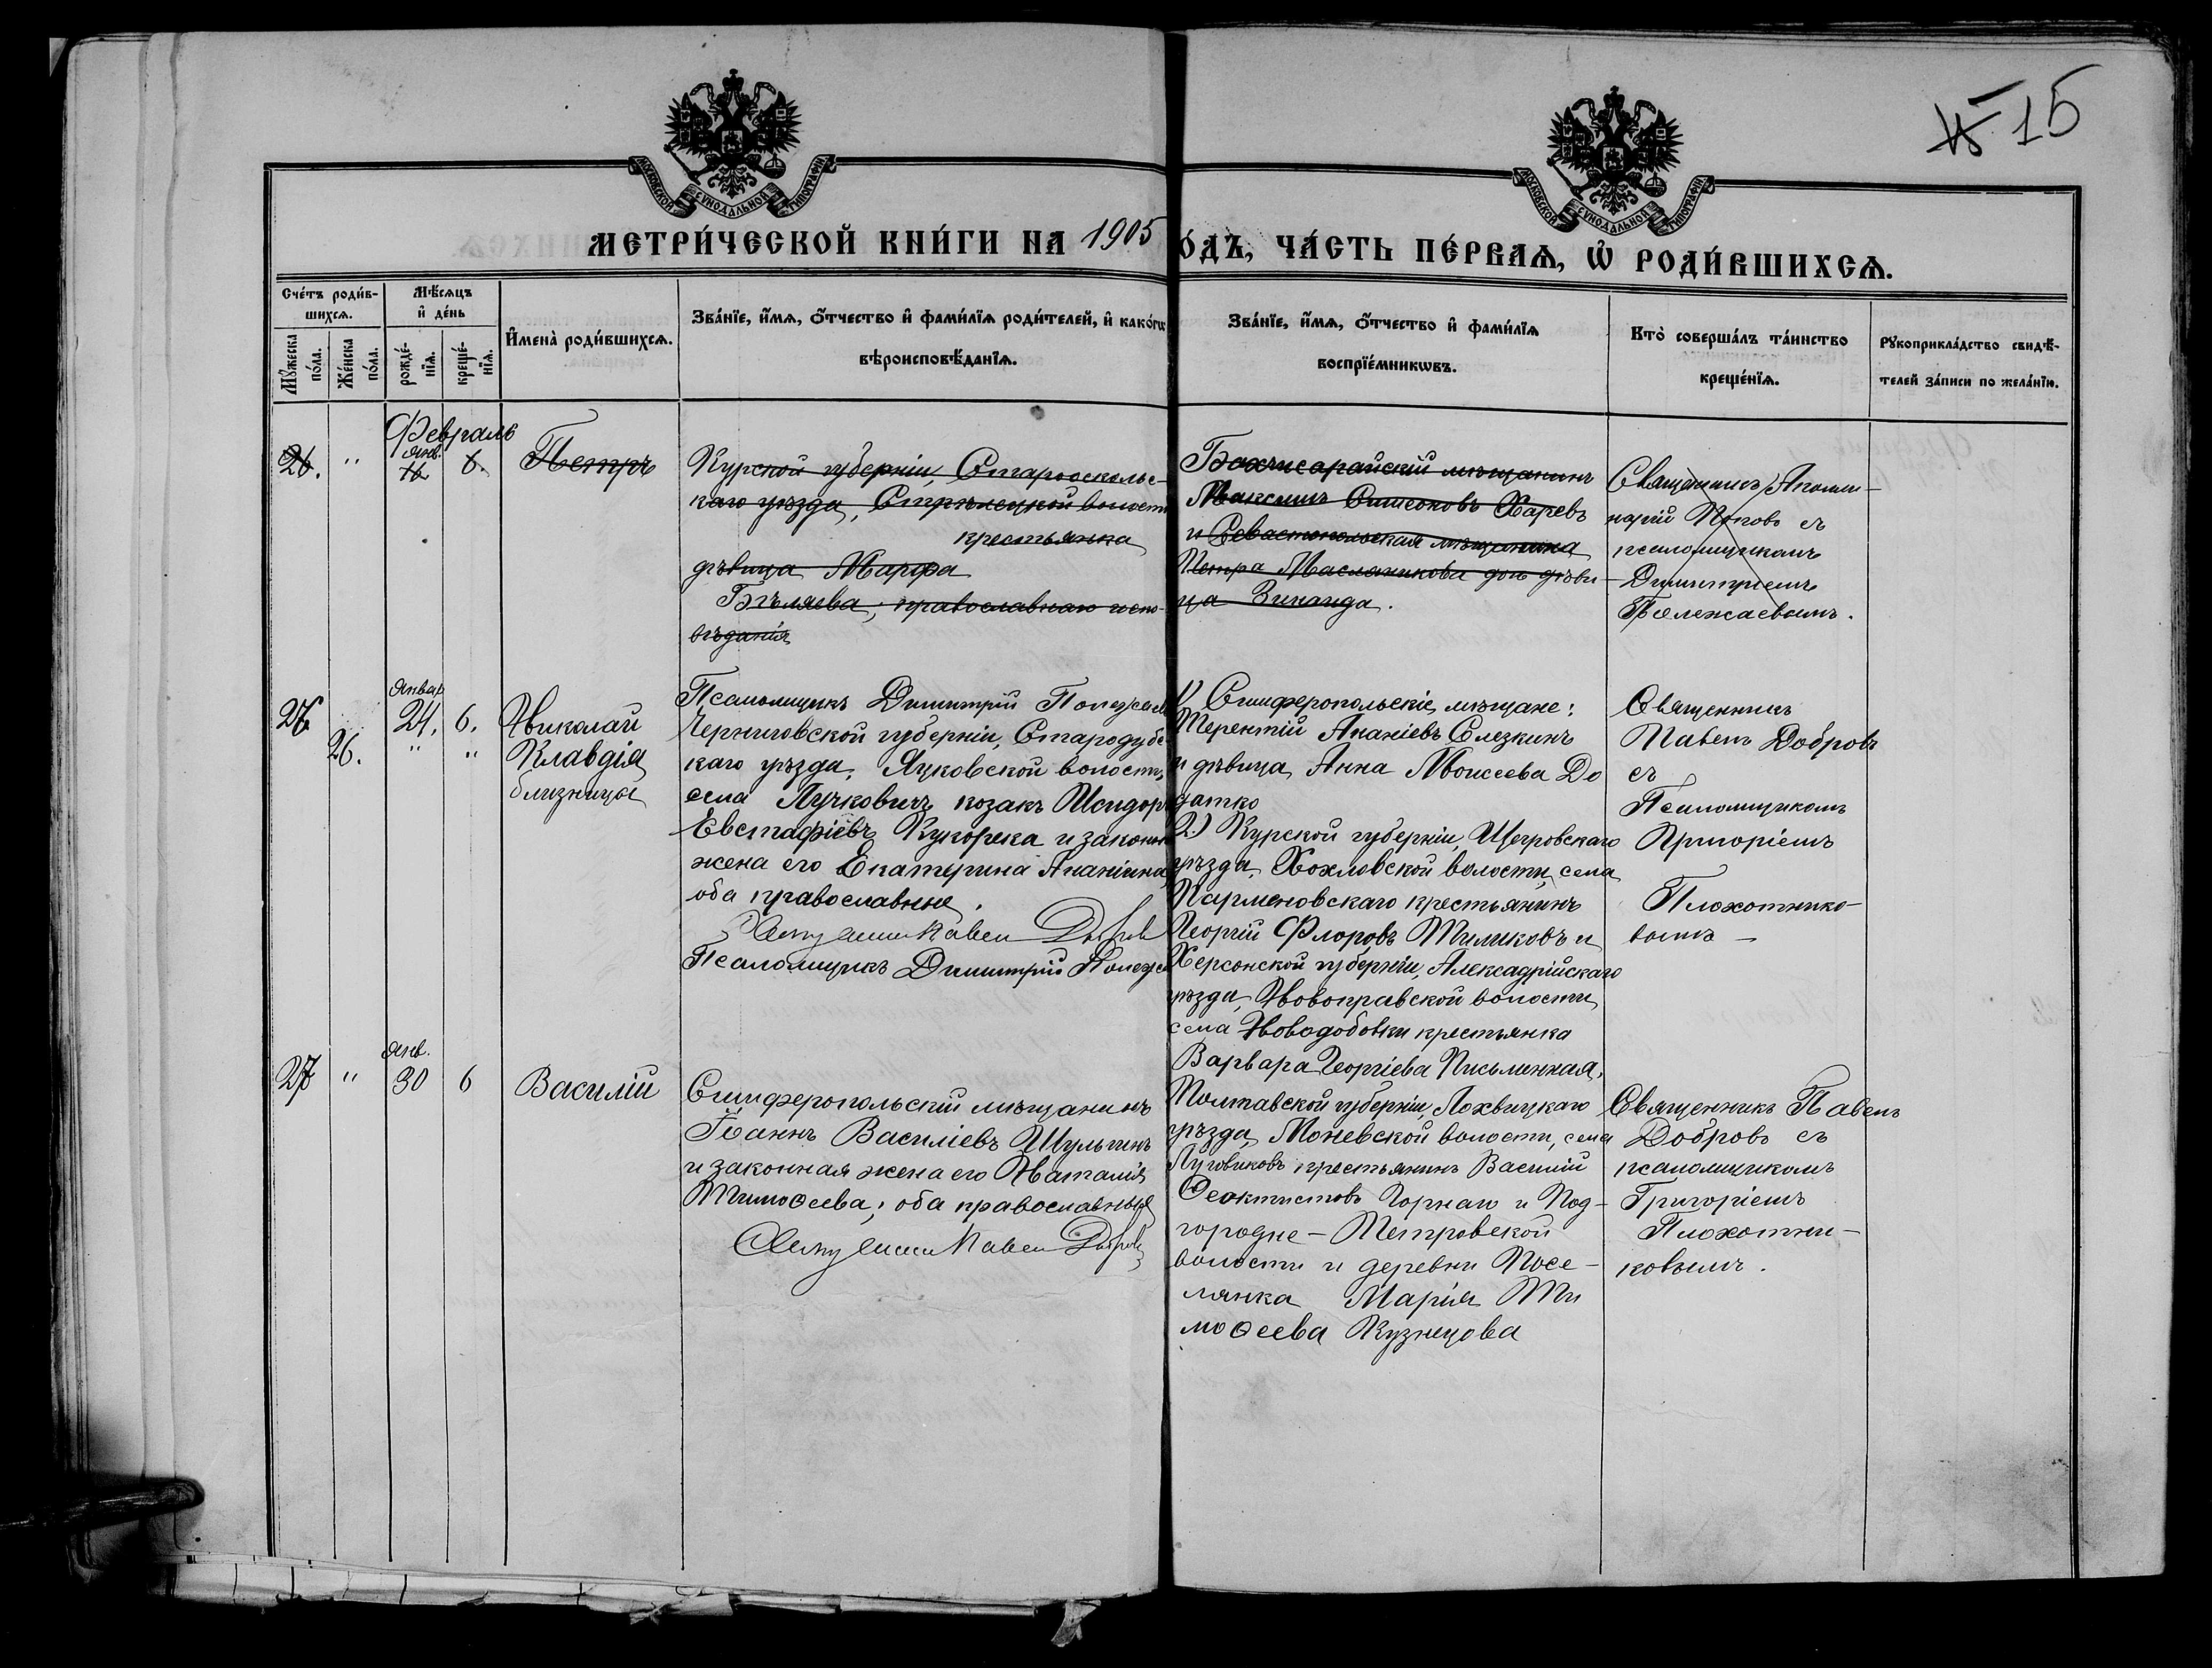 15
МОСКОВСКОЙ СѴНОДАЛЬНОЙ ТИПОГРАФІИ
МОСКОВСКОЙ СѴНОДАЛЬНОЙ ТИПОГРАФІИ
МЕТРИ́ЧЕСКОЙ КНИ́ГИ НА 1905
ОДЪ, ЧА́СТЬ ПЕ́РВАѦ, Ѡ҆ РОДИ́ВШИХСѦ.
Сче́тъ роди́в-
шихсѧ.
Мꙋ́жеска
по́ла.
Же́нска
по́ла.
Мѣ́сѧцъ
и҆ де́нь
рожде́-
нїѧ.
креще́-
нїѧ.
И҆мена̀ роди́вшихсѧ.
Зва́нїе, и҆́мѧ, ѻ҆́тчество и҆ фами́лїѧ роди́телей, и҆ како́гѡ
вѣроисповѣ́данїѧ.
Зва́нїе, и҆́мѧ, ѻ҆́тчество и҆ фами́лїѧ
воспрїе́мникѡвъ.
Кто̀ соверша́лъ та́инство
креще́нїѧ.
Рꙋкоприкла́дство свидѣ́-
телей за́писи по жела́нїю.
Февраль
26. " Янв. 16 6. Петръ
Курской губерніи, Старооскольс-
каго уѣзда, Стрѣлецкой волости
крестьянка
дѣвица Марѳа
Бѣляева, православнаго испо-
вѣданія
Бахчисарайскій мѣщанинъ
Максимъ Симеоновъ Харевъ
и Севастопольская мѣщанина
Петра Масленикова дочь дѣви-
ца Зинаида.
Священникъ Аполли-
нарій Поповъ съ
псаломщикомъ
Димитріемъ
Полежаевымъ.
Январ
26 24. 6. Николай
26. " " Клавдія
близнецы
Псаломщикъ Димитрій Полежа
Черниговской губерніи, Стародубс-
каго уѣзда, Яцковской волости,
села Лучковичъ козакъ Исидоръ
Евстафіевъ Кукорека и законн
жена его Екатерина Ананіина,
оба православные.
Павелъ Добровъ
Псаломщикъ Димитрій Полежа
1) Симферопольскіе мѣщане:
Терентій Ананіевъ Слезкинъ
и дѣвица Анна Моисеева До
датко
2.) Курской губерніи, Щегровскаго
уѣзда, Хохловской волости, села
Парменовскаго крестьянинъ
Георгій Флоровъ Тиликовъ и
Херсонской губерніи, Алексадрійскаго
уѣзда, Новоправской волости,
села Новодобовки крестьянка
Варвара Георгіева Письменная,
Священникъ
Павелъ Добровъ
съ
Псаломщикомъ
Григоріемъ
Плохотнико-
вымъ —
Янв.
27 " 30 6 Василій
Симферопольскій мѣщанинъ
Іоаннъ Василіевъ Шульгинъ
и законная жена его Наталія
Тимоѳеева; оба православные
Павелъ Добровъ
Полтавской губерніи, Лохвицкаго
уѣзда, Моневской волости, села
Луговиковъ крестьянинъ Василій
Ѳеоктистовъ Горнаго и Под-
городне-Петровской
волости и деревни Посе-
лянка Марія Ти
моѳеева Кузнецова
Священникъ Павелъ
Добровъ съ
псаломщикомъ
Григоріемъ
Плохотни-
ковымъ.